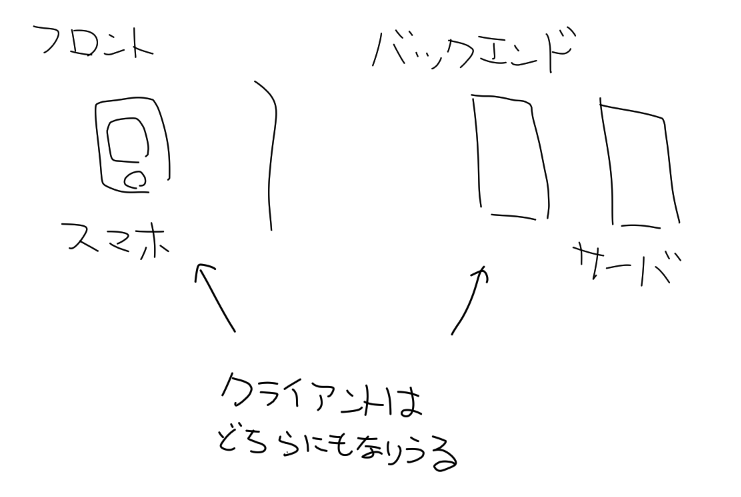 フロント
バックエンド
スマホ
サーバ
クライアントは
どちらにもなりうる